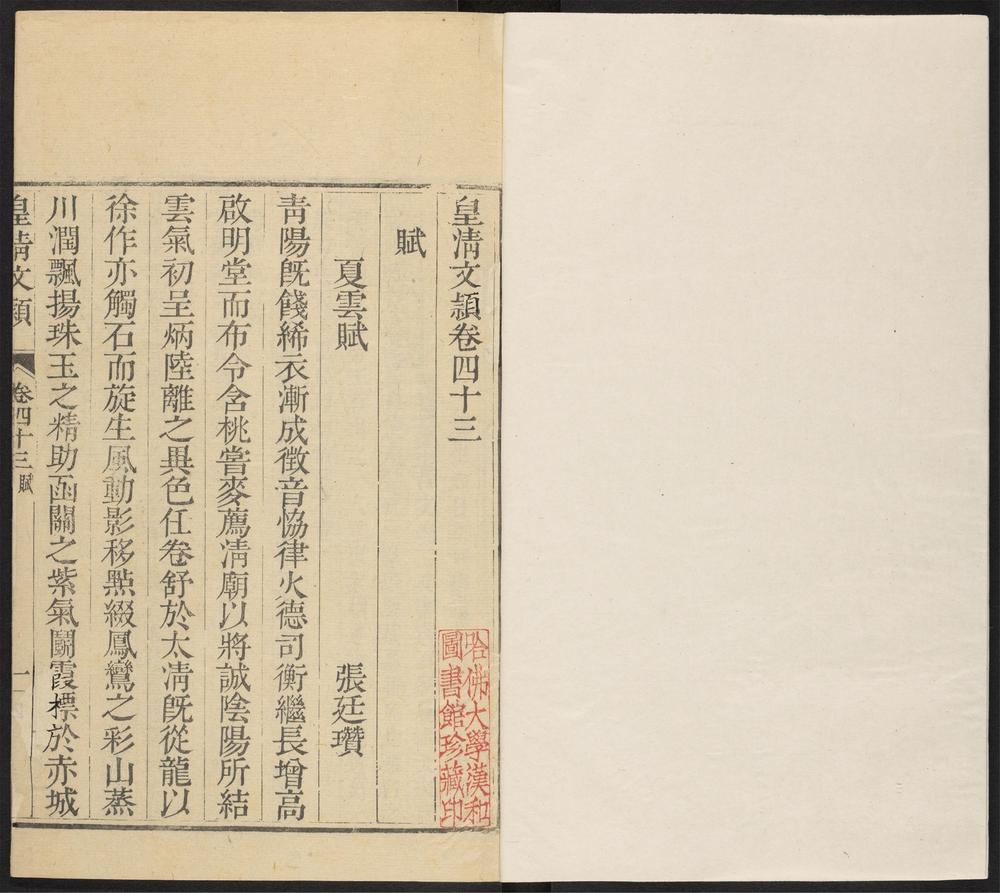 皇淸文頴卷四十三
賦
夏雲賦　張廷瓚
靑陽旣餞絺衣漸成徴音恊律火德司衡繼長增高
啟明堂而布令含桃嘗麥薦淸廟以將誠陰陽所結
雲氣初呈炳陸離之異色任卷舒於太淸旣從龍以
徐作亦觸石而旋生風動影移㸃綴鳳鸞之彩山蒸
川潤飄揚珠玉之精助函關之紫氣鬭霞標於赤城
皇淸文頴
卷四十三賦
一
哈佛大學漢和
圖書館珍藏印